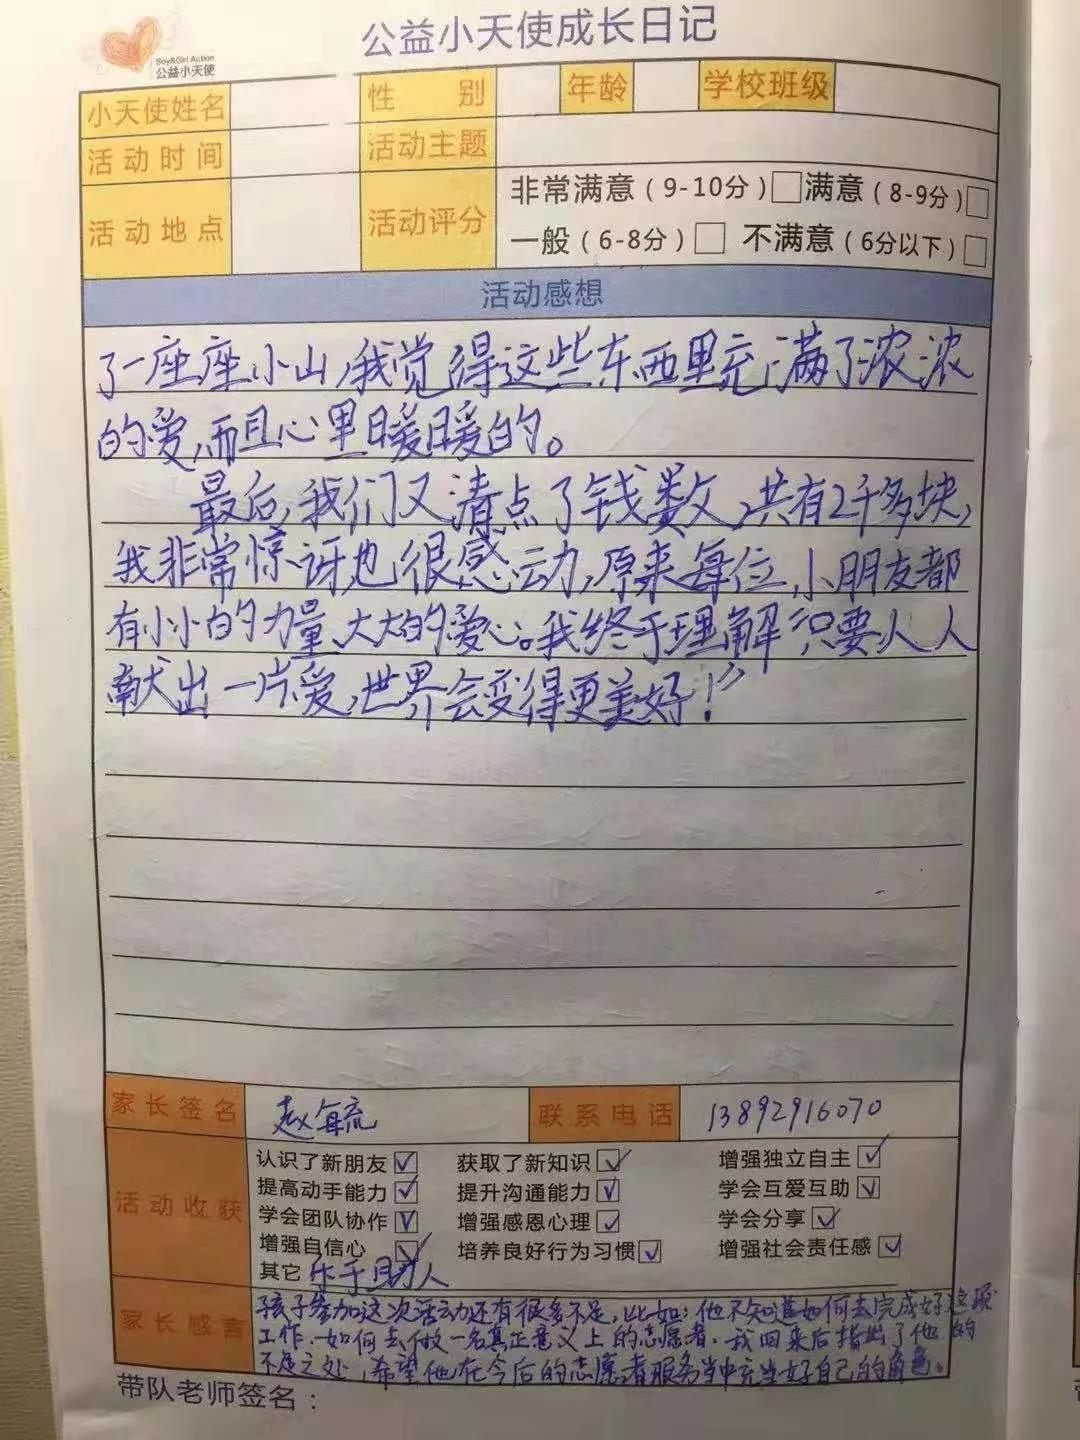 公益小天使成长日记
Boy&Girl Action
公益小天使
小天使姓名 性别 年龄 学校班级
活动时间 活动主题
活动地点 活动评分 非常满意（9-10分）□满意（8-9分）□
一般（6-8分）□ 不满意（6分以下）□
活动感想
了一座座小山，我觉得这些东西里充满了浓浓
的爱，而且心里暖暖的。
最后，我们又清点了钱数，共有2千多块，
我非常惊讶也很感动，原来每位小朋友都
有小小的力量、大大的爱心。我终于理解“只要人人
献出一片爱，世界会变得更美好！”
家长签名 赵毓 联系电话 13892916070
活动收获
认识了新朋友☑ 获取了新知识☑ 增强独立自主☑
提高动手能力☑ 提升沟通能力☑ 学会互爱互助☑
学会团队协作☑ 增强感恩心理☑ 学会分享☑
增强自信心☑ 培养良好行为习惯☑ 增强社会责任感☑
其它 乐于助人
家长感言
孩子参加这次活动还有很多不足，比如：他不知道如何去完成好这项
工作、如何去做一名真正意义上的志愿者。我回来后指出了他的
不足之处，希望他在今后的志愿者服务当中充当好自己的角色。
带队老师签名：